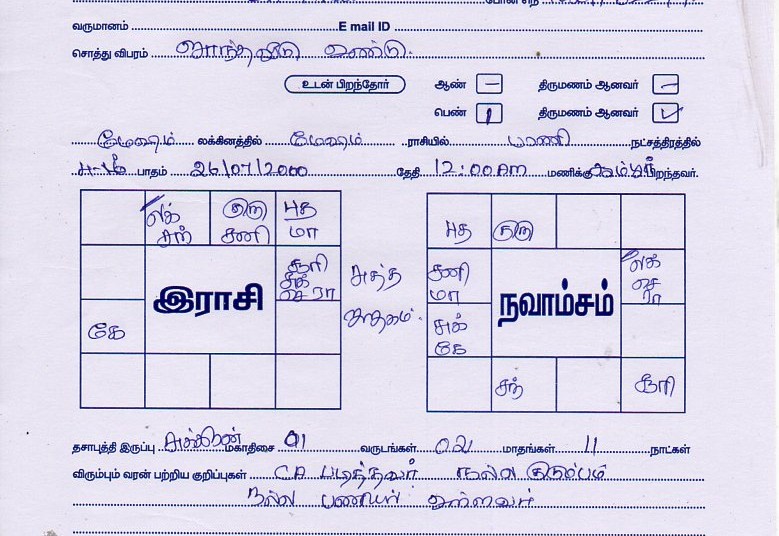 வருமானம் E mail ID
சொத்து விபரம் சொந்தவீடு உண்டு.
உடன் பிறந்தோர் ஆண் – திருமணம் ஆனவர் –
பெண் 1 திருமணம் ஆனவர் ✓
மேஷம் லக்கினத்தில் மேஷம் ராசியில் பரணி நட்சத்திரத்தில்
4-ம் பாதம் 26/07/2000 தேதி 12:00 Am மணிக்கு பிறந்தவர்.
லக் சந்
குரு சனி
புத மா
சூரி சுக் செ ரா
இராசி
கே
சுத்த ஜாதகம்.
புத
குரு
சனி மா
லக் செ ரா
நவாம்சம்
சுக் கே
சந்
சூரி
தசாபுத்தி இருப்பு சுக்கிரன் மகாதிசை 01 வருடங்கள் 02 மாதங்கள் 11 நாட்கள்
விரும்பும் வரன் பற்றிய குறிப்புகள் CA படித்தவர் நல்ல குடும்பம்
நல்ல உள்ளவர்